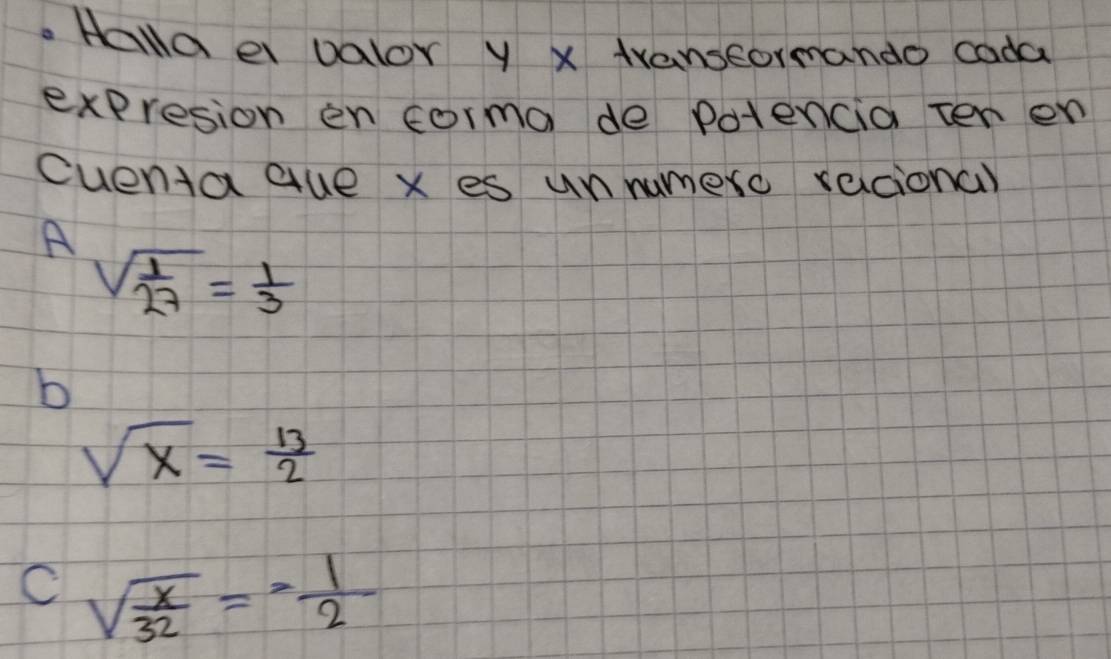 • Halla el valor y x transformando cada
expresion en forma de potencia Ten en
cuenta que x es un numero racional
A √(1/27) = 1/3
b
√x = 13/2
C √(x/32) = -1/2